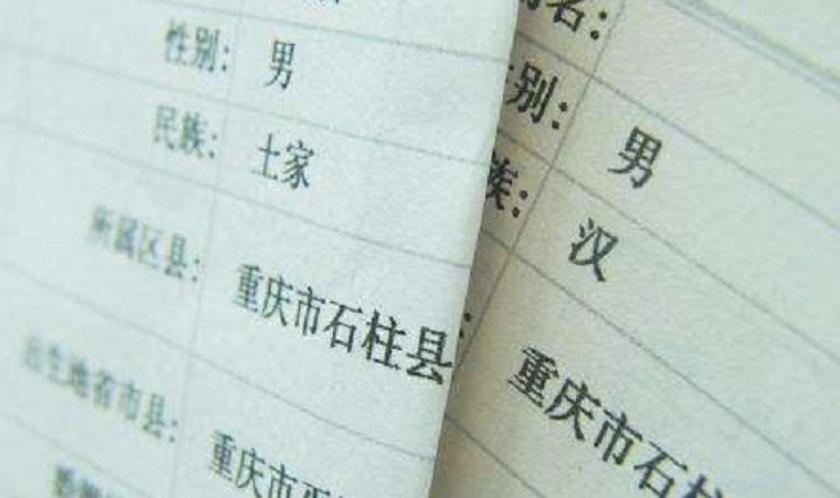 性别： 男
民族： 土家
所属区县： 重庆市石柱县
出生地省市县： 重庆市
名：
别： 男
族： 汉
重庆市石柱